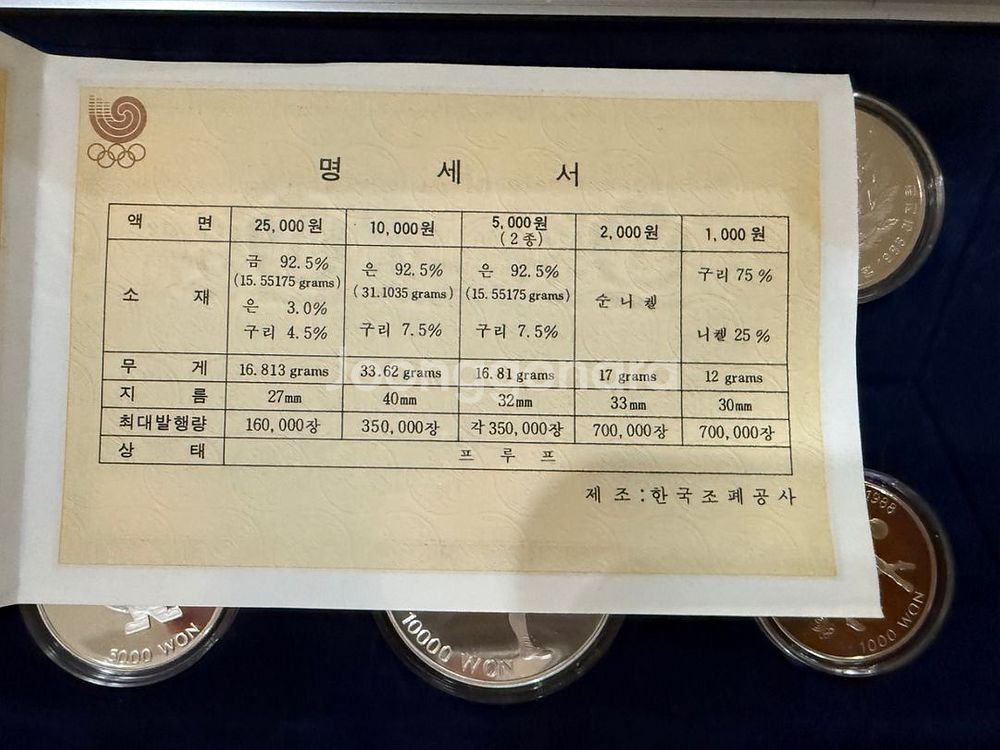 명 세 서
액 면 25,000원 10,000원 5,000원 2,000원 1,000 원
(2종)
소 재 금 92.5% 은 92.5% 은 92.5% 순 니 켈 구리 75 %
(15.55175 grams) (31.1035 grams) (15.55175 grams)
은 3.0%
구리 4.5% 구리 7.5% 구리 7.5% 니켈 25 %
무 게 16.813 grams 33.62 grams 16.81 grams 17 grams 12 grams
지 름 27mm 40mm 32mm 33mm 30mm
최대발행량 160,000장 350,000장 각 350,000장 700,000장 700,000장
상 태 프 루 프
제 조 : 한 국 조 폐 공 사
Joonggonara
1988
5000 WON
10000 WON
1000 WON